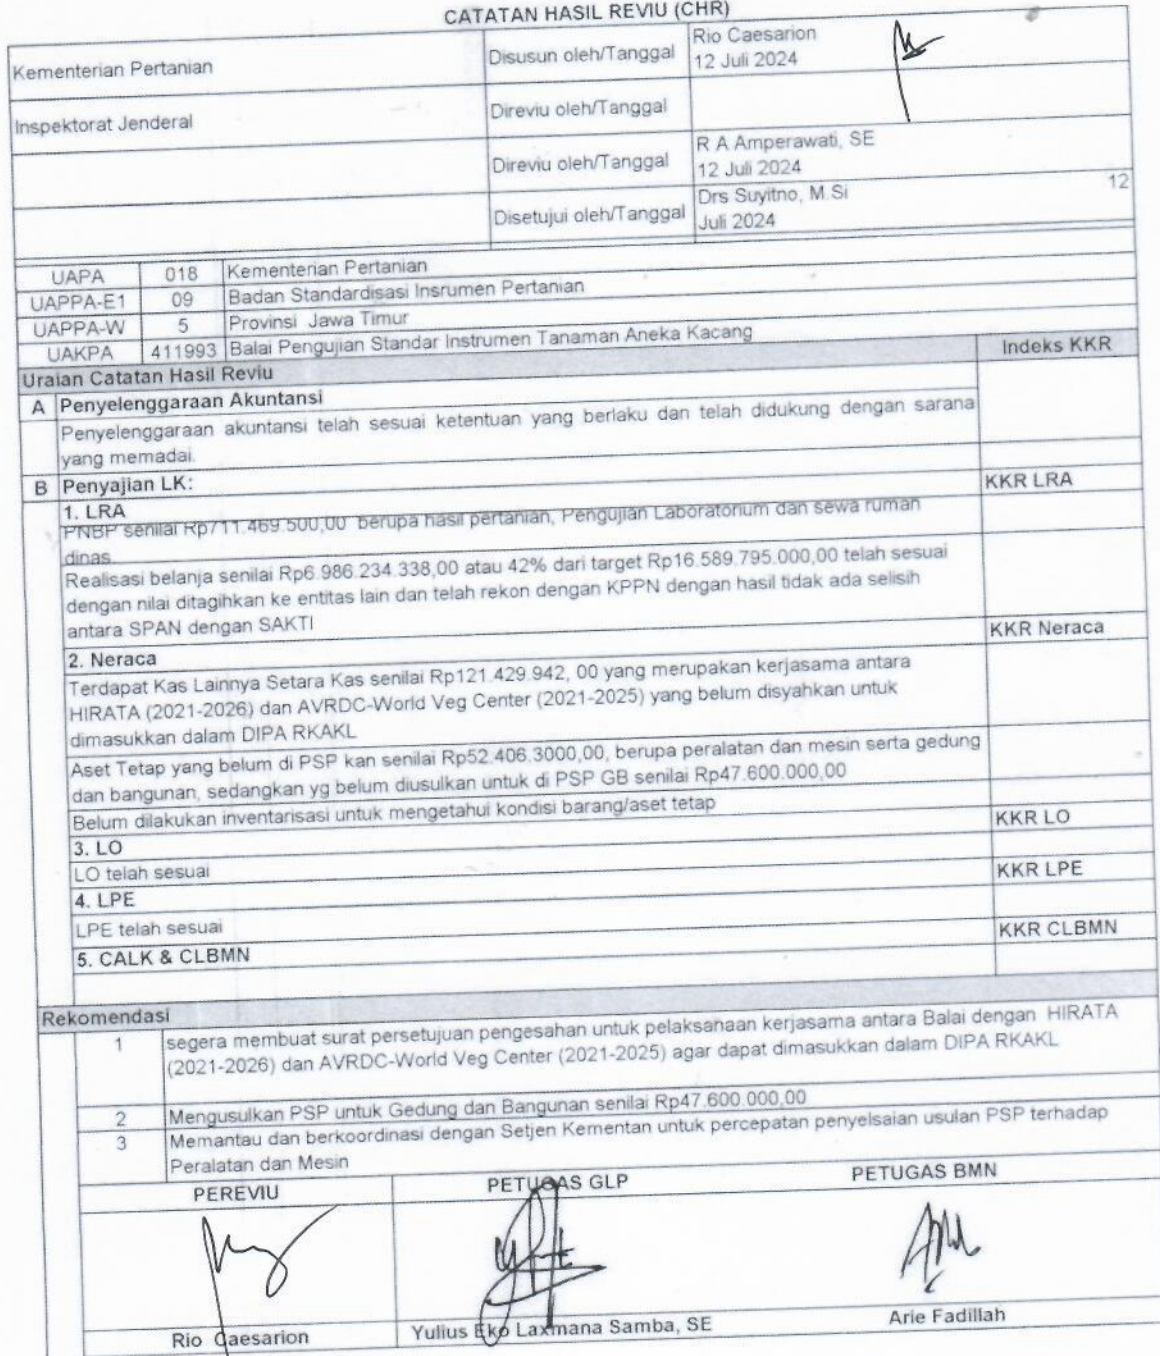 CATATAN HASIL REVIU (CHR)
Kementerian Pertanian
Disusun oleh/Tanggal
Rio Caesarion
12 Juli 2024
Inspektorat Jenderal
Direviu oleh/Tanggal
Direviu oleh/Tanggal
R A Amperawati, SE
12 Juli 2024
Disetujui oleh/Tanggal
Drs Suyitno, M.Si 12
Juli 2024
UAPA 018 Kementerian Pertanian
UAPPA-E1 09 Badan Standardisasi Insrumen Pertanian
UAPPA-W 5 Provinsi Jawa Timur
UAKPA 411993 Balai Pengujian Standar Instrumen Tanaman Aneka Kacang
Uraian Catatan Hasil Reviu Indeks KKR
A Penyelenggaraan Akuntansi
Penyelenggaraan akuntansi telah sesuai ketentuan yang berlaku dan telah didukung dengan sarana
yang memadai.
B Penyajian LK: KKR LRA
1. LRA
PNBP senilai Rp711.469.500,00 berupa hasil pertanian, Pengujian Laboratorium dan sewa rumah
dinas
Realisasi belanja senilai Rp6.986.234.338,00 atau 42% dari target Rp16.589.795.000,00 telah sesuai
dengan nilai ditagihkan ke entitas lain dan telah rekon dengan KPPN dengan hasil tidak ada selisih
antara SPAN dengan SAKTI
2. Neraca KKR Neraca
Terdapat Kas Lainnya Setara Kas senilai Rp121.429.942, 00 yang merupakan kerjasama antara
HIRATA (2021-2026) dan AVRDC-World Veg Center (2021-2025) yang belum disyahkan untuk
dimasukkan dalam DIPA RKAKL
Aset Tetap yang belum di PSP kan senilai Rp52.406.3000,00, berupa peralatan dan mesin serta gedung
dan bangunan, sedangkan yg belum diusulkan untuk di PSP GB senilai Rp47.600.000,00
Belum dilakukan inventarisasi untuk mengetahui kondisi barang/aset tetap
3. LO KKR LO
LO telah sesuai
4. LPE KKR LPE
LPE telah sesuai
5. CALK & CLBMN KKR CLBMN
Rekomendasi
1 segera membuat surat persetujuan pengesahan untuk pelaksanaan kerjasama antara Balai dengan HIRATA
(2021-2026) dan AVRDC-World Veg Center (2021-2025) agar dapat dimasukkan dalam DIPA RKAKL
2 Mengusulkan PSP untuk Gedung dan Bangunan senilai Rp47.600.000,00
3 Memantau dan berkoordinasi dengan Setjen Kementan untuk percepatan penyelsaian usulan PSP terhadap
Peralatan dan Mesin
PEREVIU PETUGAS GLP PETUGAS BMN
Rio Caesarion Yulius Eko Laxmana Samba, SE Arie Fadillah